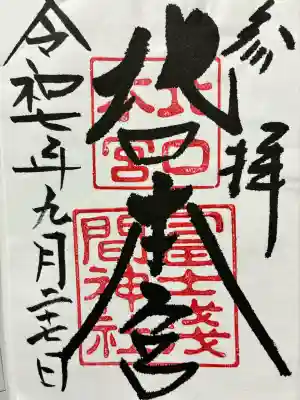 参拝
北口本宮
令和七年九月二十七日
北口
本宮
冨士浅
間神社